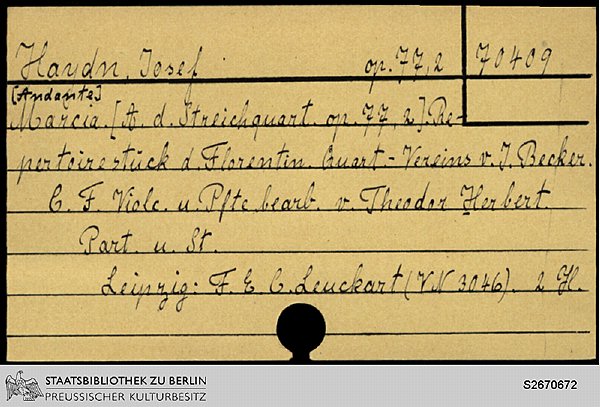 Haydn, Josef op. 77,2 70409
[Andante]
Marcia. [A. d. Streichquart. op. 77, 2]. Re-
pertoirestück d. Florentin. Quart-Vereins v. J. Becker.
C. F. Viole. u. Pfte bearb. v. Theodor Herbert.
Part. u. St.
Leipzig: F. E. C. Leuckart (VN 3046). 2 Hl.
STAATSBIBLIOTHEK ZU BERLIN
PREUSSISCHER KULTURBESITZ
S2670672